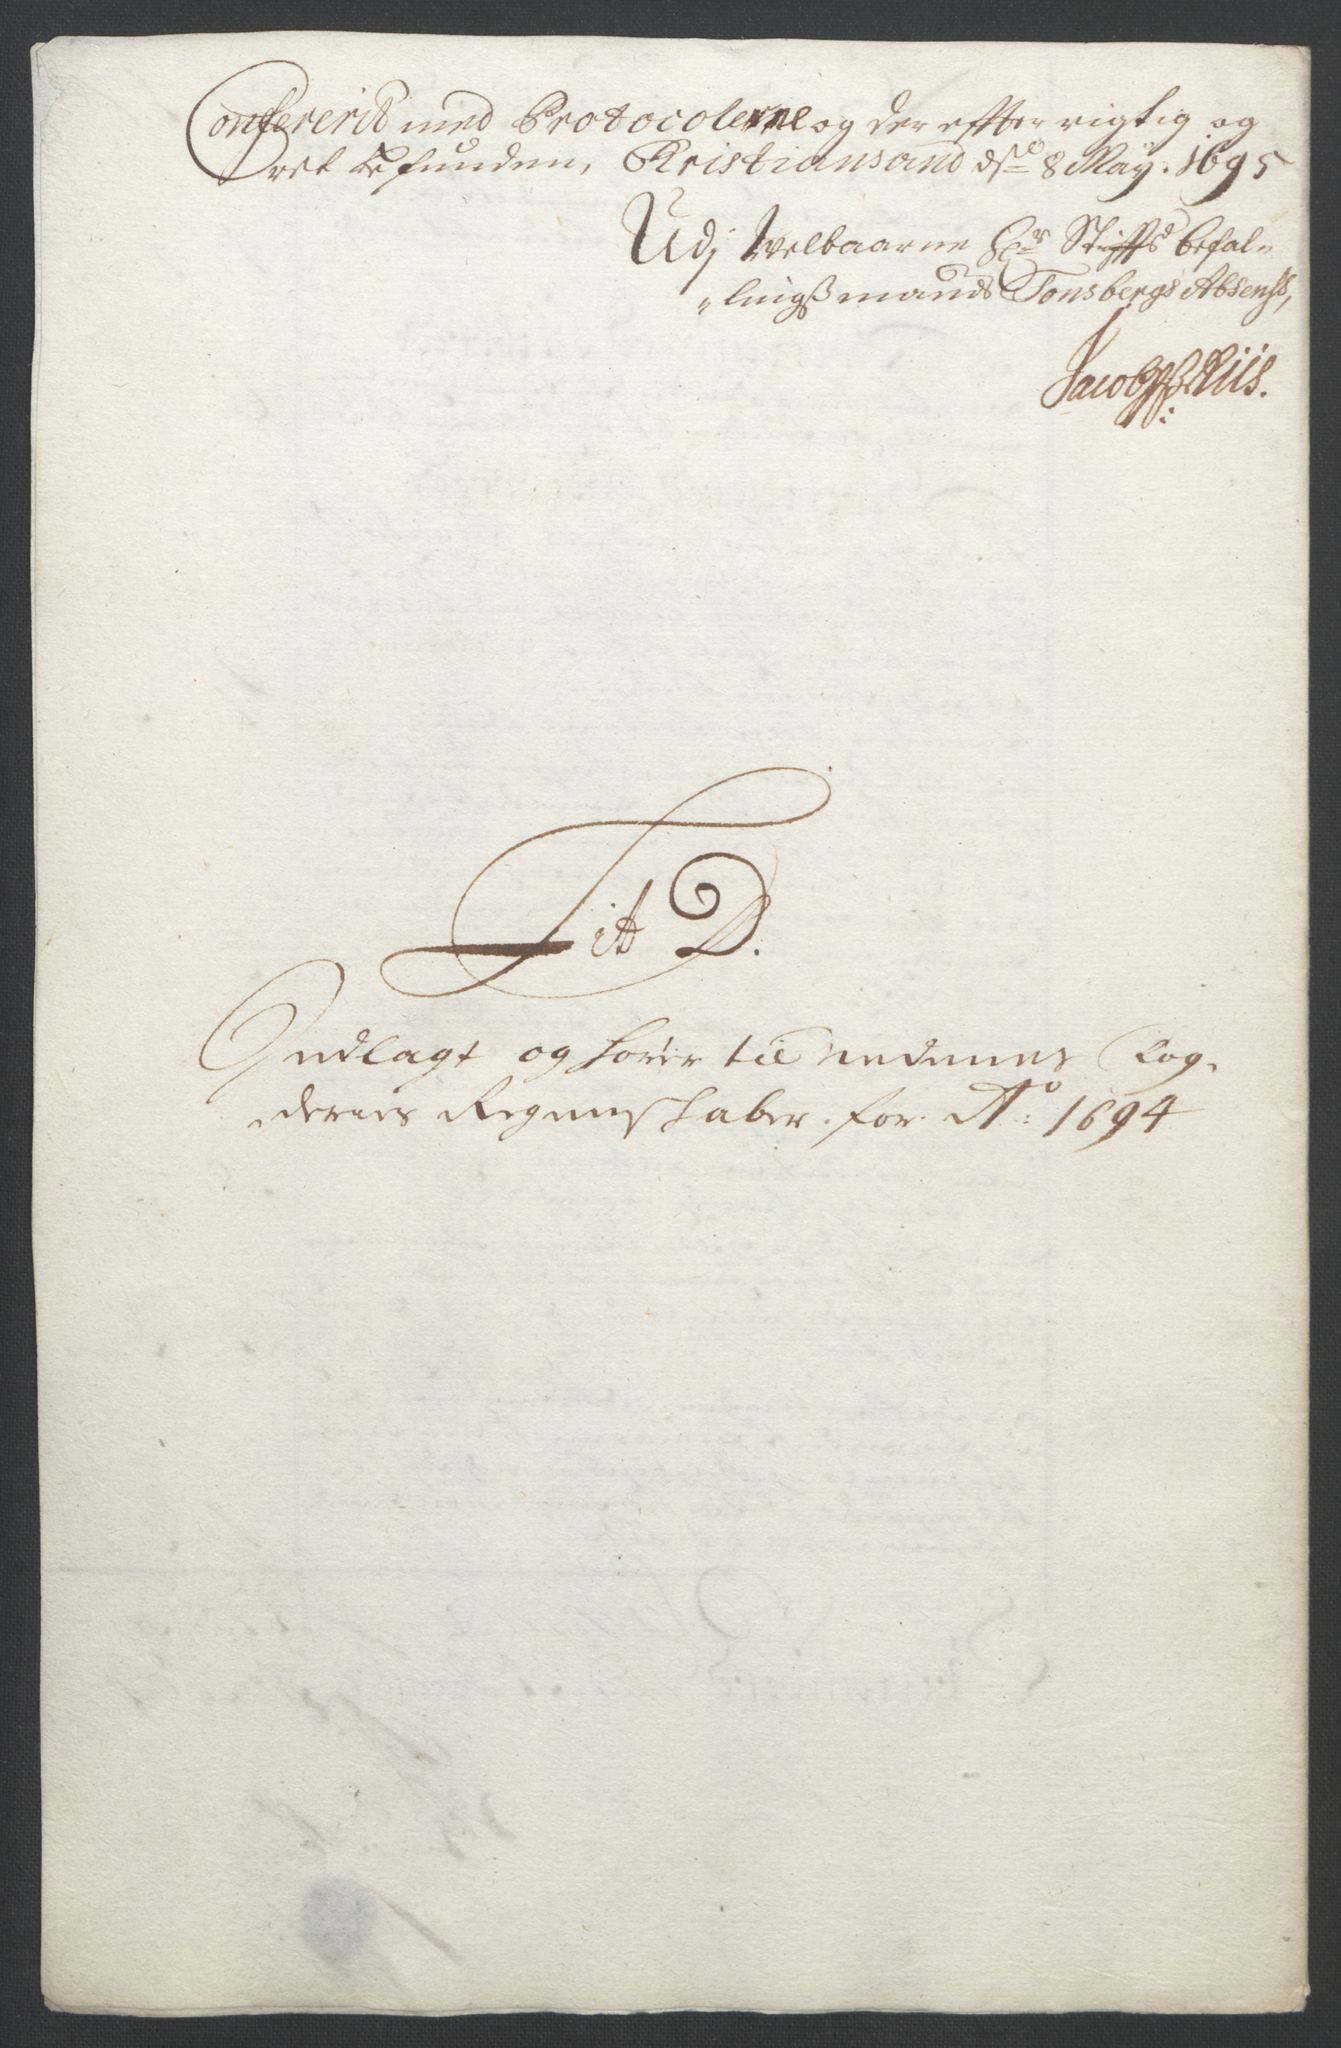 Confererit med Protocolerne og der efter rigtig og
ret befunden, Kristiansand dſ 8 Maÿ: 1695
Udj Welbaarne Hr Stiffts befal„
„lingsmands Tonsbergs Absens,
Jacob Riis.
Lit D.
Indlagt og hører til Nedenes Fog„
deries Regenskaber. for. Ao: 1694